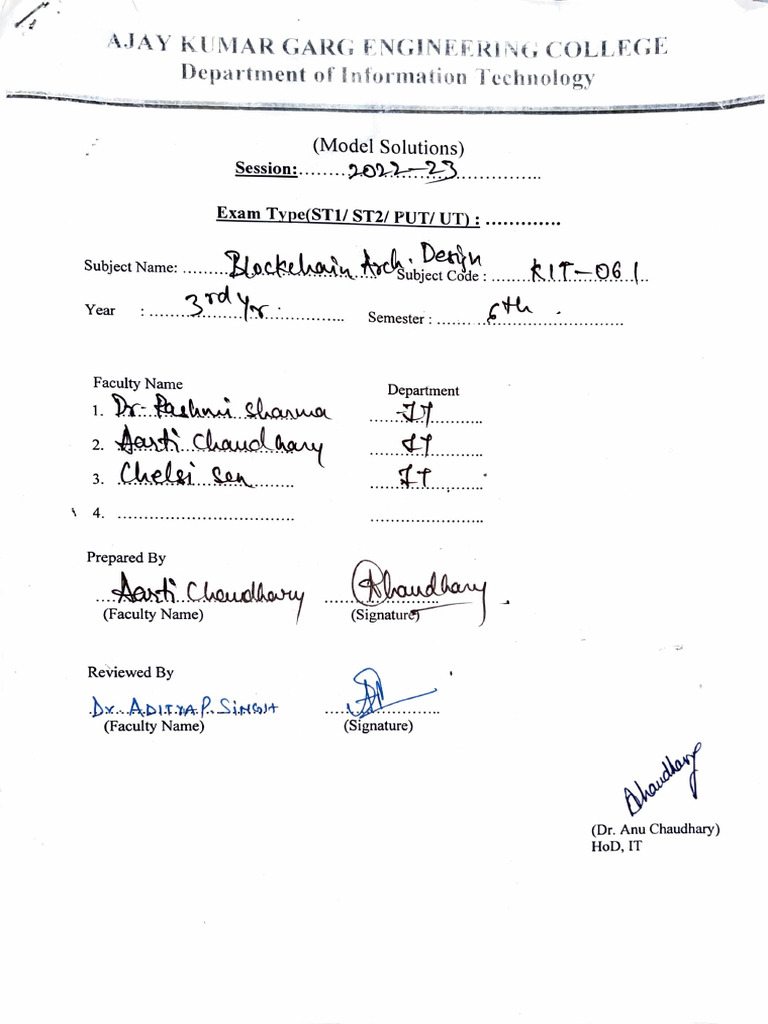 AJAY KUMAR GARG ENGINEERING COLLEGE
Department of Information Technology
(Model Solutions)
Session:........2022-23...............
Exam Type(ST1/ ST2/ PUT/ UT) : .............
Subject Name: Blockchain Arch. Design Subject Code : KIT-061
Year : 3rd Yr. Semester : 6th
Faculty Name Department
1. Dr. Rashmi Sharma IT
2. Aarti Chaudhary IT
3. Chelsi Sen IT
4. .................................. .......................
Prepared By
Aarti Chaudhary AChaudhary
(Faculty Name) (Signature)
Reviewed By
Dr. ADITYA P. SINGH
(Faculty Name) (Signature)
AChaudhary
(Dr. Anu Chaudhary)
HoD, IT